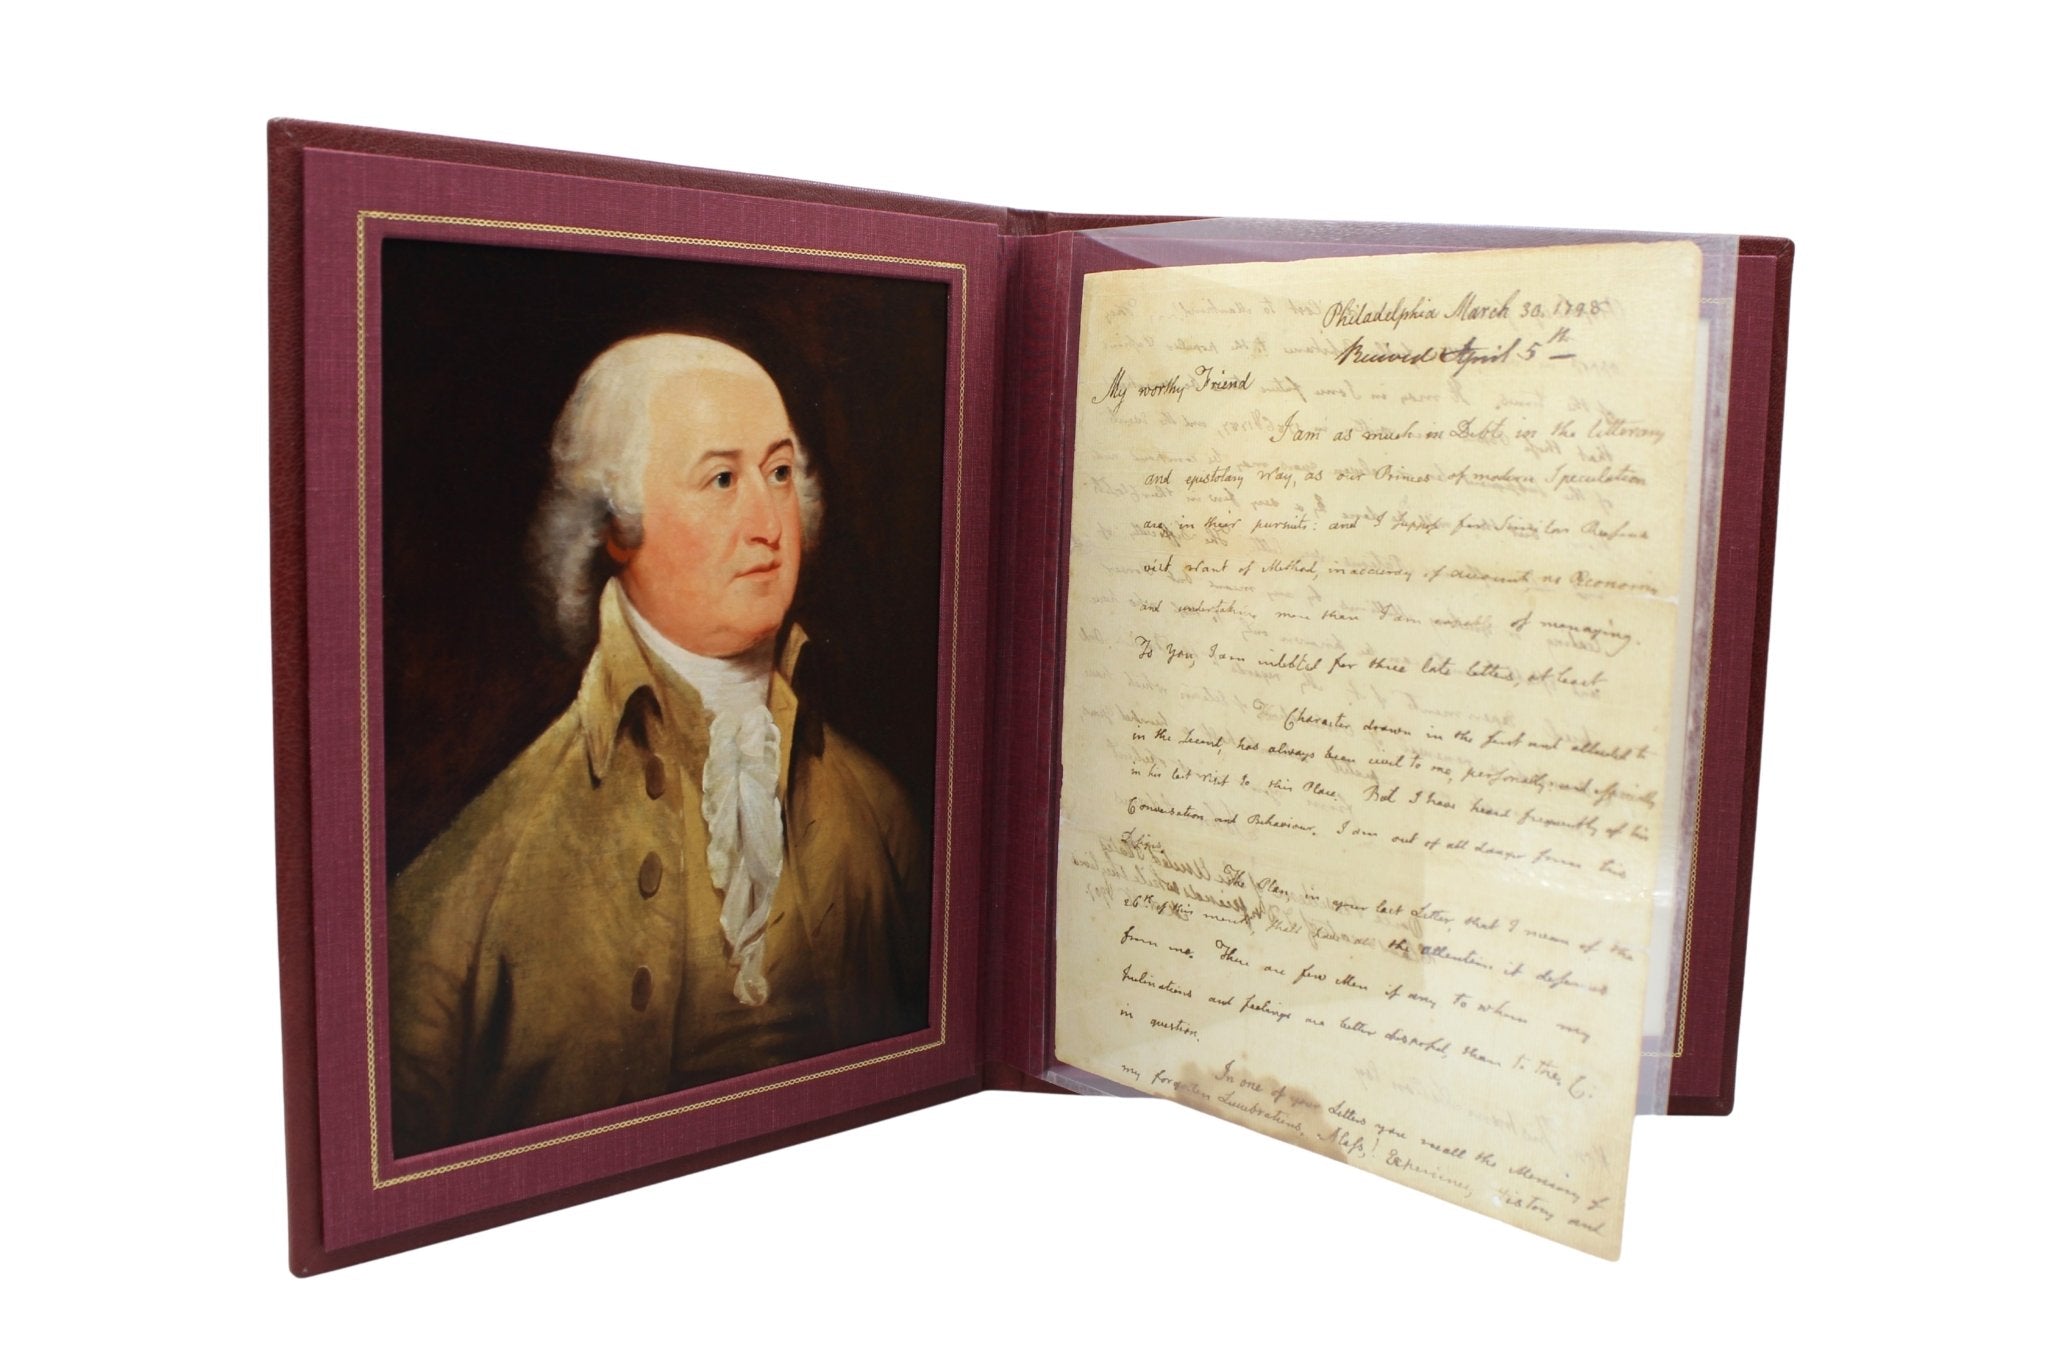 Philadelphia March 30. 1798
Recieved April 5th
My worthy Friend
I am as much in Debt in the litterary
and epistolary Way, as our Princes of modern Speculation
are in their pursuits: and I suppose for Similar Reasons
vizt Want of Method, inaccuracy of account, no Œconomy
and undertaking more than I am capable of managing.
To You, I am indebted for three late letters, at least
Character drawn in the first and alluded to
in the Second, has always been civil to me, personally and officially
in his last visit to this Place. But I have heard frequently of his
Conversation and Behaviour. I am out of all danger from his
The Plan, in your last Letter, that I mean of the
26th of this month, shall have all the attention it deserves
from me. There are few Men if any to whom my
Inclinations and feelings are better disposed, than to the
in question.
In one of your Letters you recall the Memory of
my forgotten Lucubrations. Alass,! Experience, History and